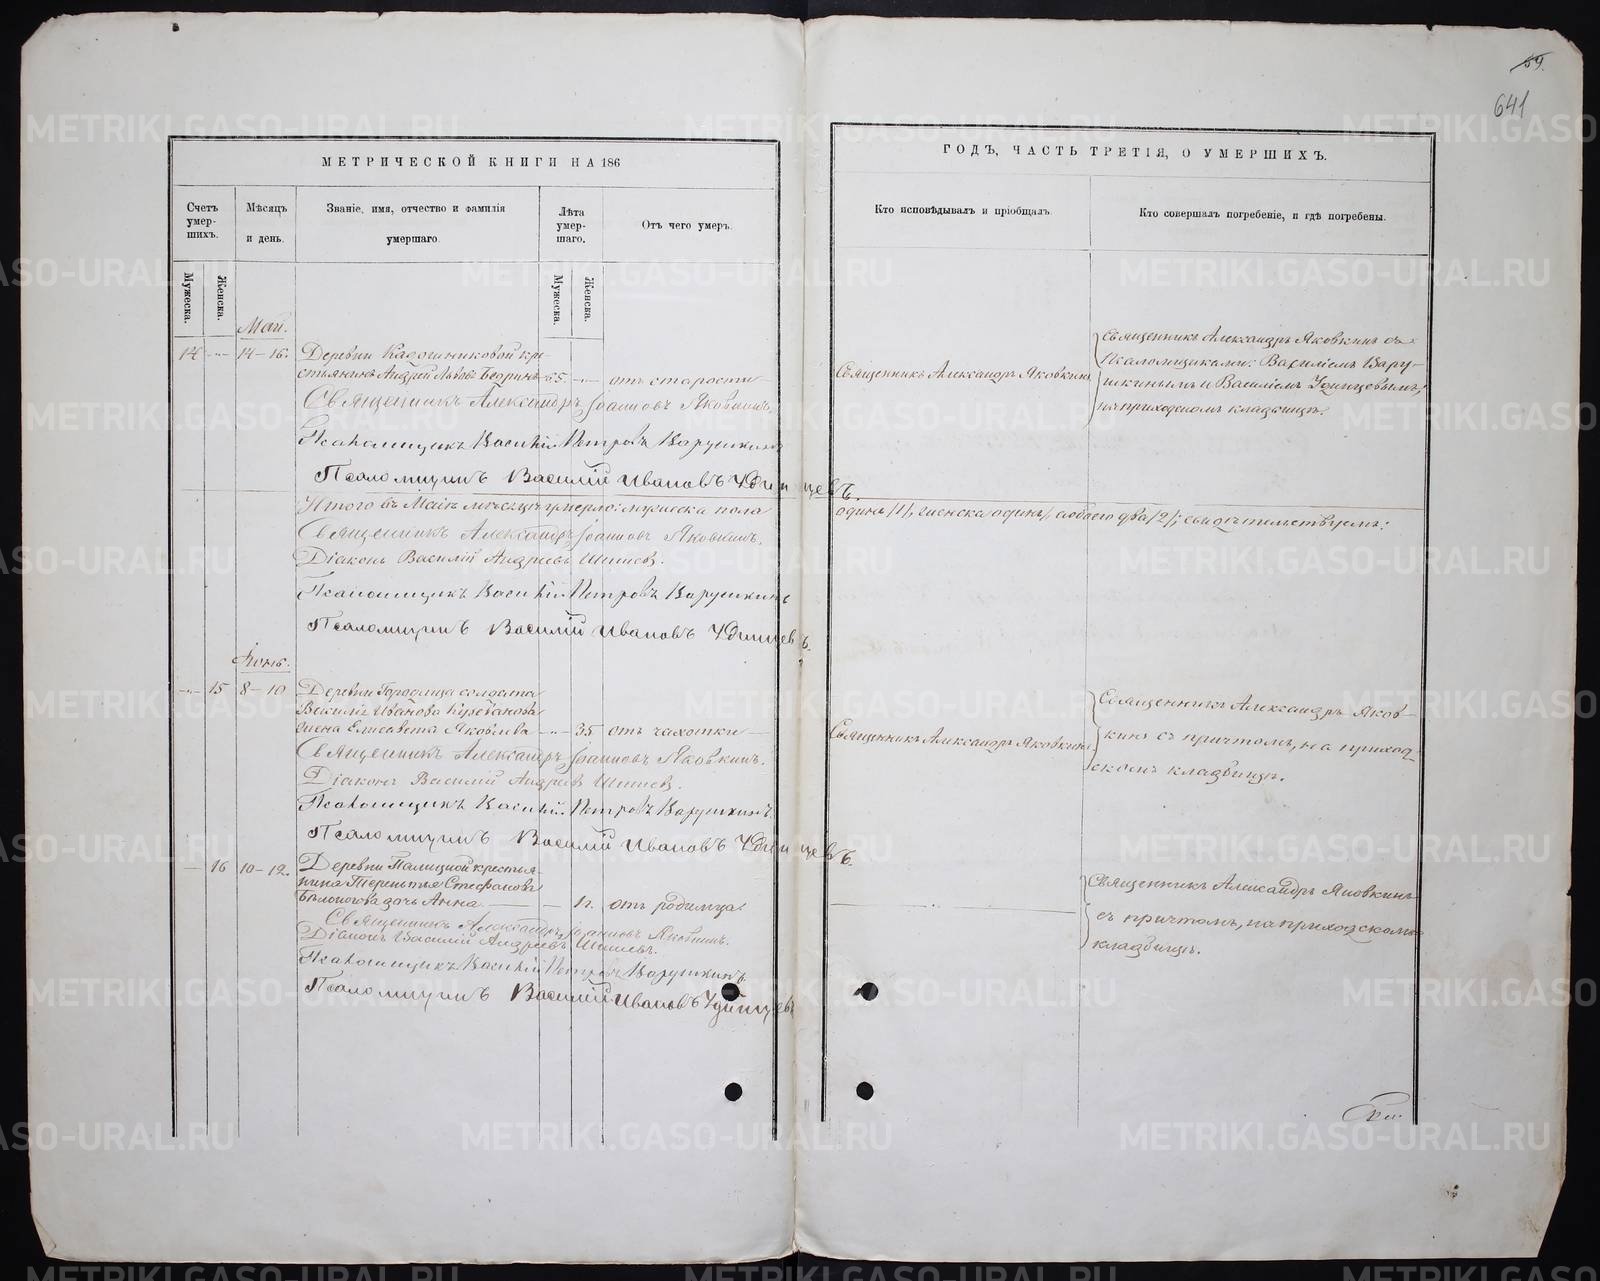 59.
641
МЕТРИЧЕСКОЙ КНИГИ НА 186
ГОДЪ, ЧАСТЬ ТРЕТІЯ, О УМЕРШИХЪ.
Счетъ умер-шихъ.
Мѣсяцъ и день.
Званіе, имя, отчество и фамилія умершаго.
Лѣта умер-шаго.
Отъ чего умеръ.
Кто исповѣдывалъ и пріобщалъ.
Кто совершалъ погребеніе, и гдѣ погребены.
Мужеска.
Женска.
Мужеска.
Женска.
Май.
14 -"- 14-16. Деревни Кадошниковой кре-
стьянинъ Андрей Львовъ 65. -"- отъ старости
Священникъ Александръ Іоанновъ Яковкинъ.
Псаломщикъ Василій Петровъ Варушкинъ
Псаломщикъ Василій Ивановъ Удинцевъ.
Священникъ Александръ Яковкинъ
Священникъ Александръ Яковкинъ съ
Псаломщиками: Василіемъ Вару-
шкинымъ и Василіемъ Удинцевымъ,
на приходскомъ кладбищѣ.
Итого въ Маѣ мѣсяцѣ умерло: мужеска пола
одинъ /1/, женска одинъ, а обоего два /2/; свидѣтельствуемъ:
Священникъ Александръ Іоанновъ Яковкинъ.
Діаконъ Василій Андреевъ Шишевъ.
Псаломщикъ Василій Петровъ Варушкинъ
Псаломщикъ Василій Ивановъ Удинцевъ.
Іюнь.
-"- 15 8-10 Деревни Городища солдата
Василія Иванова
жена Елисавета Яковлева -"- 35 отъ чахотки
Священникъ Александръ Іоанновъ Яковкинъ.
Діаконъ Василій Андреевъ Шишевъ.
Псаломщикъ Василій Петровъ Варушкинъ.
Псаломщикъ Василій Ивановъ Удинцевъ.
Священникъ Александръ Яковкинъ
Священникъ Александръ Яков-
кинъ съ причтомъ, на приход-
скомъ кладбищѣ.
16 10-12. Деревни крестья-
нина Терентья Стефанова
Бѣлоногова дочь Анна 1г. отъ родимца.
Священникъ Александръ Іоанновъ Яковкинъ.
Діаконъ Василій Андреевъ Шишевъ.
Псаломщикъ Василій Петровъ Варушкинъ.
Псаломщикъ Василій Ивановъ Удинцевъ
Священникъ Александръ Яковкинъ
съ причтомъ, на приходскомъ
кладбищѣ.
METRIKI.GASO-URAL.RU